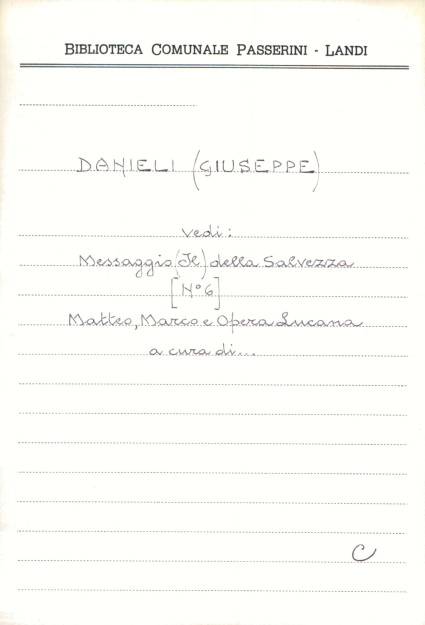 BIBLIOTECA COMUNALE PASSERINI - LANDI
DANIELI (GIUSEPPE)
Vedi:
Messaggio (Il) della Salvezza
[N° 6]
Matteo, Marco e Opera Lucana
a cura di...
C